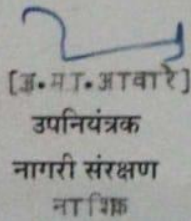 [अ.मा.आवारे]
उपनियंत्रक
नागरी संरक्षण
नाशिक